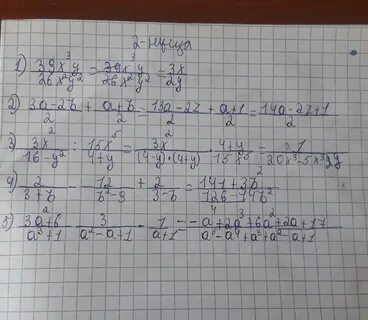 2-нұсқа
1) 39x³y/26x²y² = 39x³y/26x²y² = 3x/2y
2) 3a-2b/2 + a+b/2 = 13a-2z+a+1/2 = 14a-2z+1/2
3) 3x²/16-y² : 15x⁵/4+y = 3x²/(4-y)·(4+y) · 4+y/15x⁵ = 1/20x³-5x³y
4) 2/3+b - 12/b²-9 + 2/3-b =
5) 3a²+6/a³+1 - 3/a²-a+1 - 1/a+1 = -a⁴+2a³+6a²+2a+17/a⁵-a⁴+a³+a²-a+1